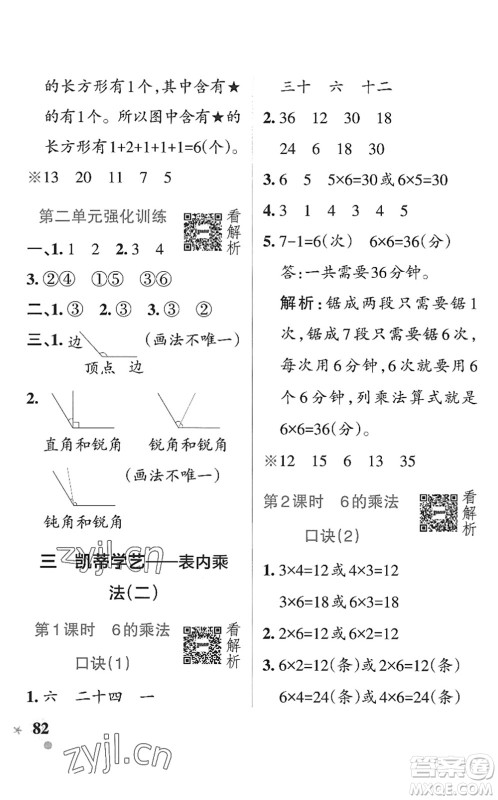 的长方形有1个,其中含有★
的有1个。所以图中含有★的
长方形有1+2+1+1+1=6(个)。
※13 20 11 5 17
第二单元强化训练
看解析
一、1.1 2 2.3 4
3.②④ ①⑤ ③⑥
二、1.③ 2.③ 3.②
三、1.边 边 (画法不唯一)
顶点
2.
直角和锐角 锐角和锐角
(画法不唯一)
钝角和锐角
三 凯蒂学艺——表内乘
法(二)
第1课时 6的乘法
口诀(1)
看解析
1.六 二十四 一
※ 82
zyjl.cn
三十 六 十二
2.36 12 30 18
24 6 18 30
3.6 5 5×6=30 6×5=30
4.3 1 4 5 3
5.7-1=6(次) 6×6=36(分)
答:一共需要36分钟。
解析:锯成两段只需要锯1
次,锯成7段只需要锯6次,
每次用6分钟,也就是6个
6分钟,列乘法算式就是
6×6=36(分)。
※12 15 6 13 35
第2课时 6的乘法
口诀(2)
看解析
1.3×4=12或4×3=12
3×6=18或6×3=18
2.> > < = = >
3.6×2=12(条)或2×6=12(条)
6×4=24(条)或4×6=24(条)
zyjl.cn
答案圈